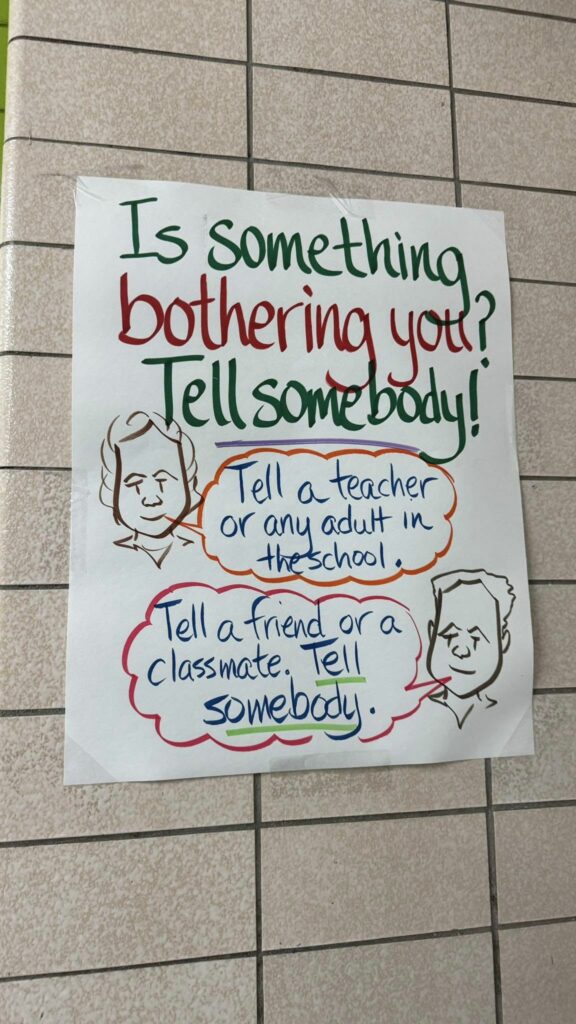 Is something
bothering you?
Tell somebody!
Tell a teacher
or any adult in
the school.
Tell a friend or a
classmate. Tell
somebody.